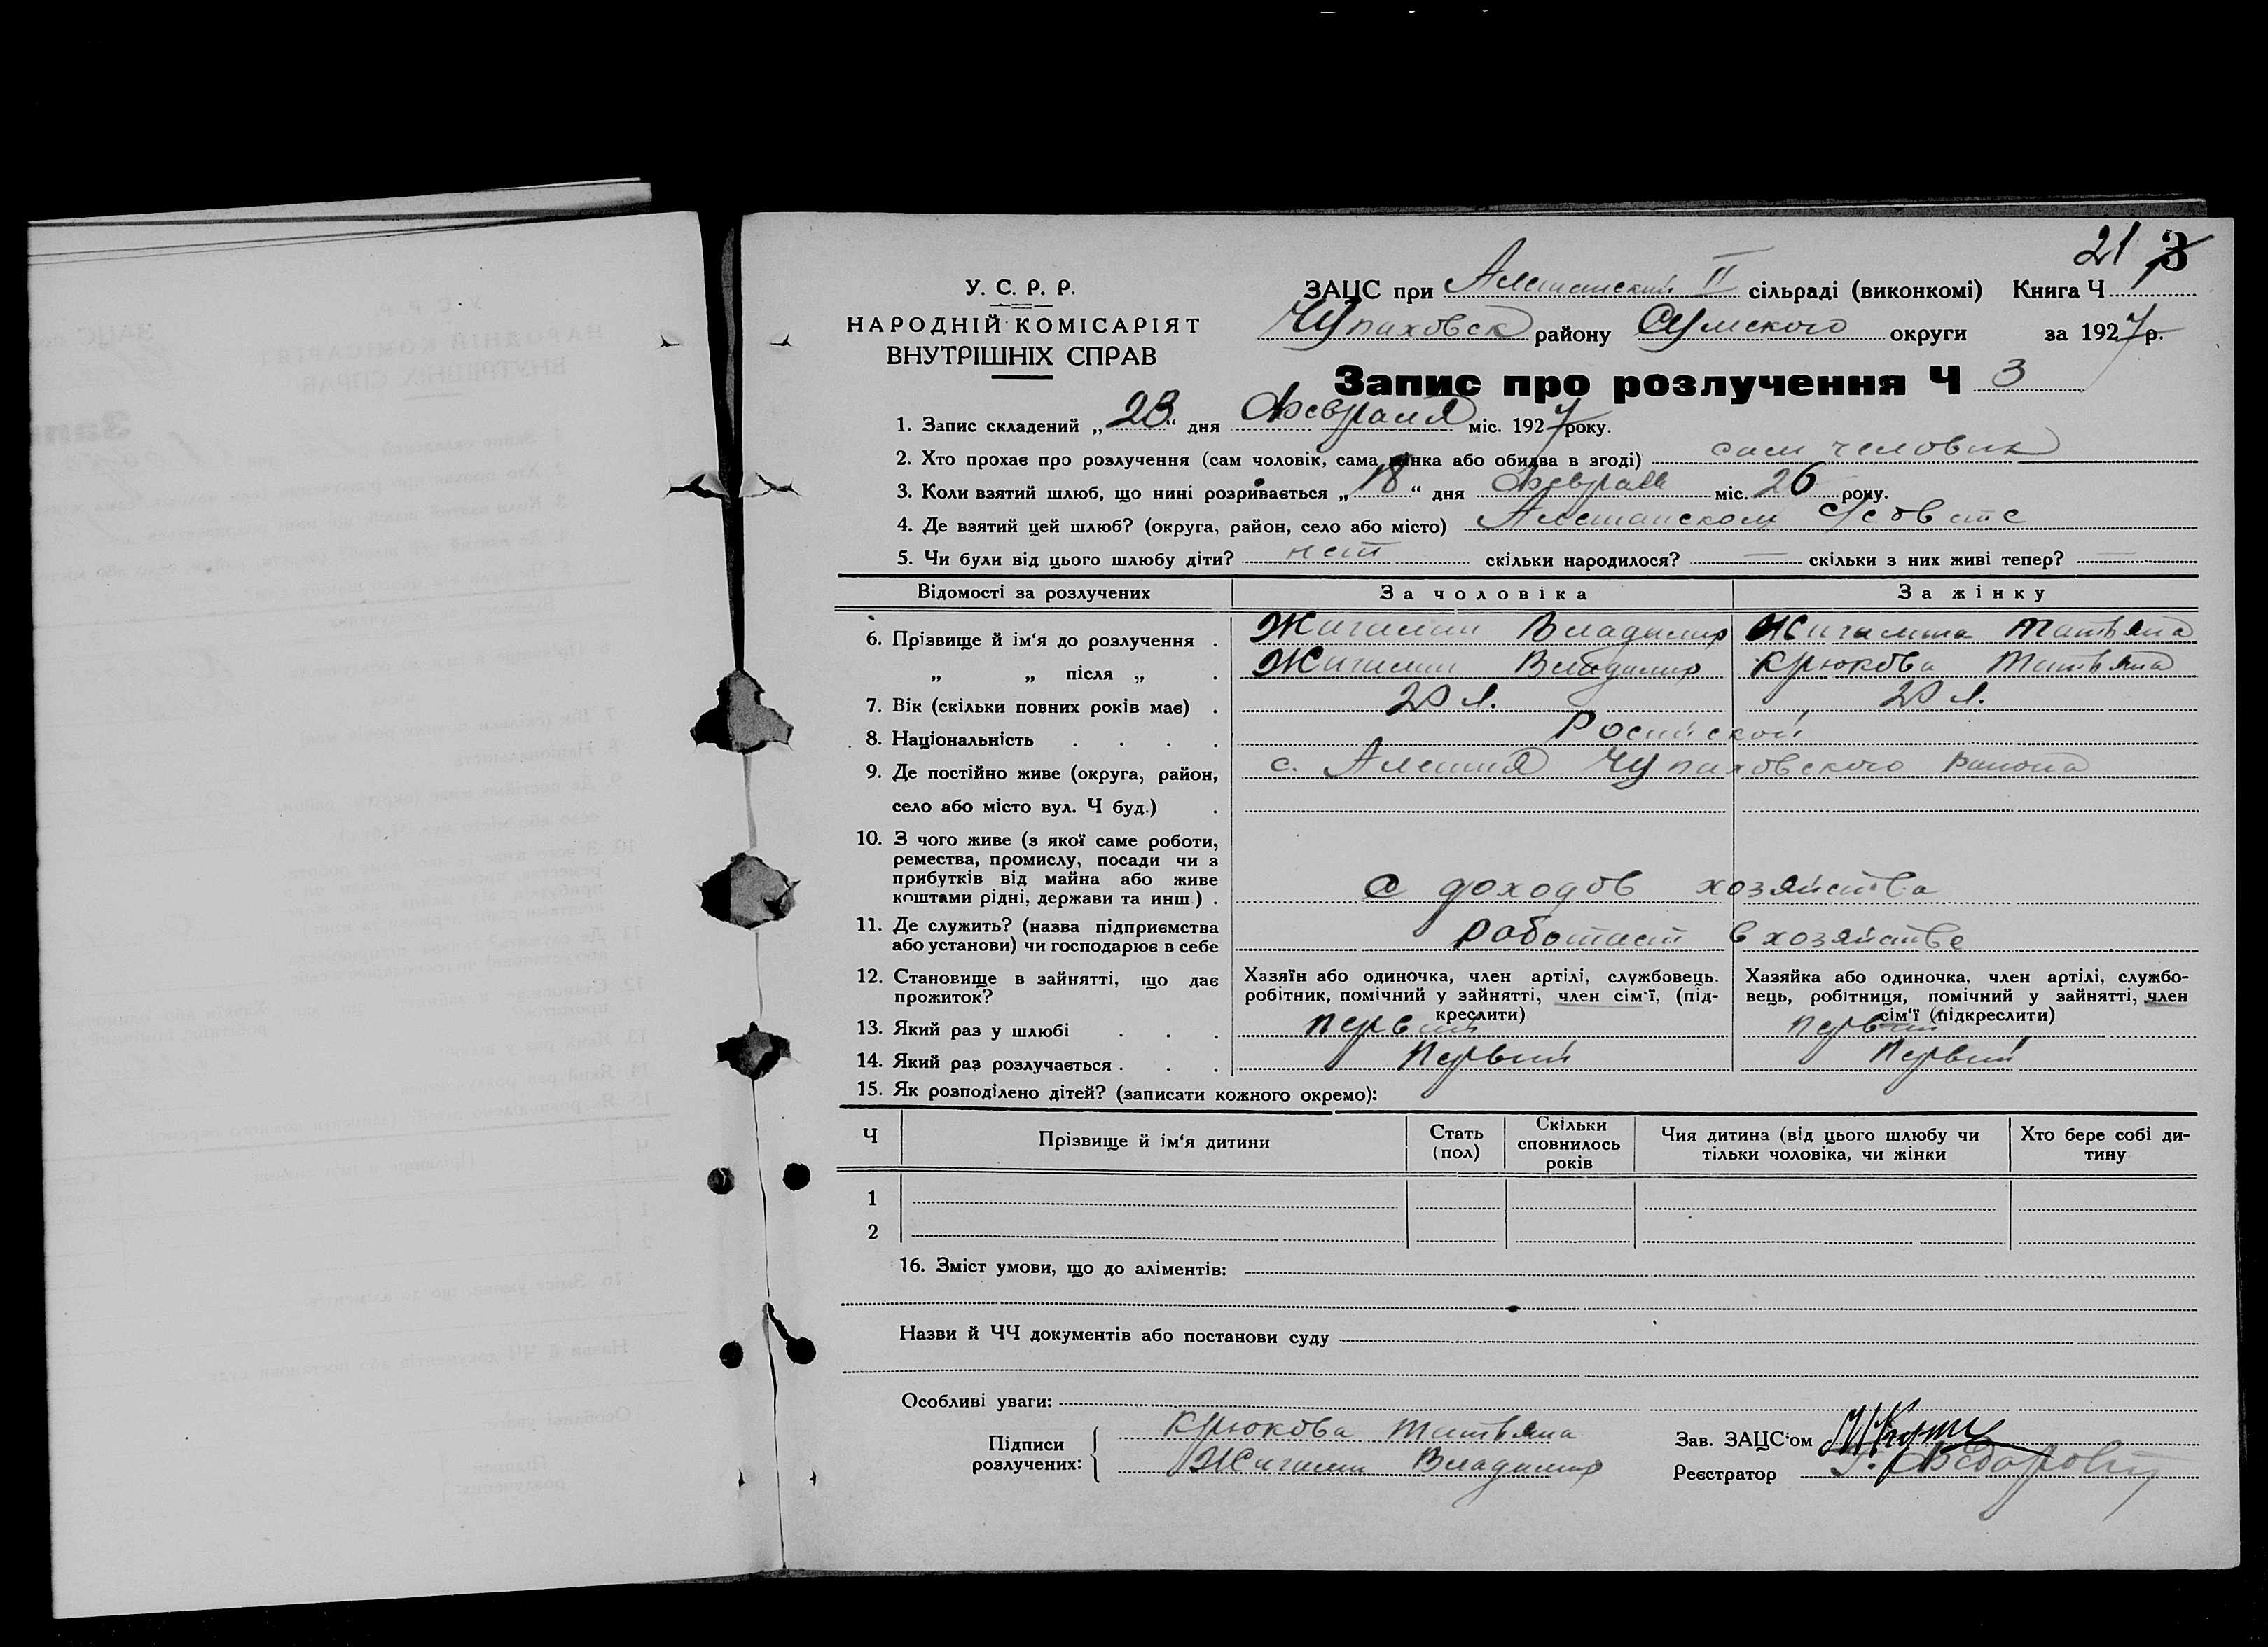 21 3
У. С. Р. Р.
НАРОДНІЙ КОМІСАРІЯТ
ВНУТРІШНІХ СПРАВ
ЗАЦС при Алешанский II сільраді (виконкомі) Книга Ч
Чупаховск району Сумского округи за 1927 р.
Запис про розлучення Ч 3
1. Запис складений „23“ дня Февраля міс. 1927 року.
2. Хто прохає про розлучення (сам чоловік, сама жінка або обидва в згоді) сам человик
3. Коли взятий шлюб, що нині розривається „18“ дня Февраля міс. 26 року.
4. Де взятий цей шлюб? (округа, район, село або місто) Алешанском с/совете
5. Чи були від цього шлюбу діти? нет скільки народилося? — скільки з них живі тепер? —
Відомості за розлучених За чоловіка За жінку
6. Прізвище й ім‘я до розлучення . Жигилии Владимир Жигилина Татьяна
„ „ після „ . Жигилии Владимир Крюкова Татьяна
7. Вік (скільки повних років має) . 20 л. 20 л.
8. Національність . . . . Росийской
9. Де постійно живе (округа, район, с. Алешня Чупаховского района
село або місто вул. Ч буд.) .
10. З чого живе (з якої саме роботи,
ремества, промислу, посади чи з
прибутків від майна або живе
коштами рідні, держави та инш) . с доходов хозяйства
11. Де служить? (назва підприємства
або установи) чи господарює в себе работает в хозяйстве
12. Становище в зайнятті, що дає Хазяїн або одиночка, член артілі, службовець. Хазяйка або одиночка, член артілі, службо-
прожиток? робітник, помічний у зайнятті, член сім‘ї, (під- вець, робітниця, помічний у зайнятті, член
креслити) сім‘ї (підкреслити)
13. Який раз у шлюбі . . . первий первий
14. Який раз розлучається . . . Первий Первий
15. Як розподілено дітей? (записати кожного окремо):
Ч Прізвище й ім‘я дитини Стать (пол) Скільки сповнилось років Чия дитина (від цього шлюбу чи тільки чоловіка, чи жінки Хто бере собі дитину
1
2
16. Зміст умови, що до аліментів:
Назви й ЧЧ документів або постанови суду
Особливі уваги:
Підписи
розлучених:
Крюкова Татьяна
Жигилии Владимир
Зав. ЗАЦС‘ом
Реєстратор